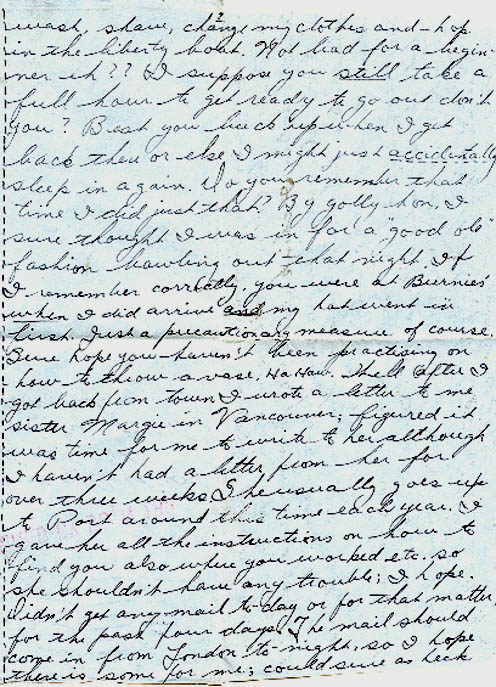 wash, shave, change my clothes and hop
in the liberty boat. Not bad for a begin-
ner eh?? I suppose you still take a
full hour to get ready to go out don't
you? Best you buck up when I get
back there or else I might just accidentally
sleep in again. Do you remember that
time I did just that? By golly hon, I
sure thought I was in for a "good ole"
fashion bawling out that night. If
I remember correctly, you were at Burnies'
when I did arrive and my hat went in
first. Just a precautionary measure of course.
Sure hope you haven't been practising on
how to throw a vase. Ha Haw. Well after I
got back from town I wrote a letter to me
sister Margie in Vancouver; figured it
was time for me to write to her although
I haven't had a letter from her for
over three weeks. She usually goes up
to Port around this time each year. I
gave her all the instructions on how to
find you also where you worked etc. so
she shouldn't have any trouble; I hope.
Didn't get any mail to-day or for that matter
for the past four days. The mail should
come in from London to-night, so I hope
there is some for me; could sure as heck